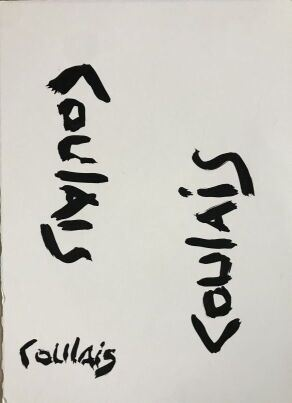 Coulais
Coulais
Coulais